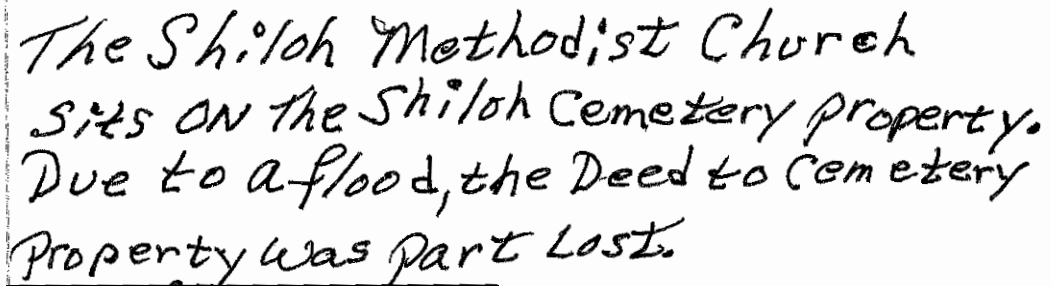 The Shiloh Methodist Church
Sits ON The Shiloh Cemetery property.
Due to a flood, the Deed to Cemetery
Property was part Lost.